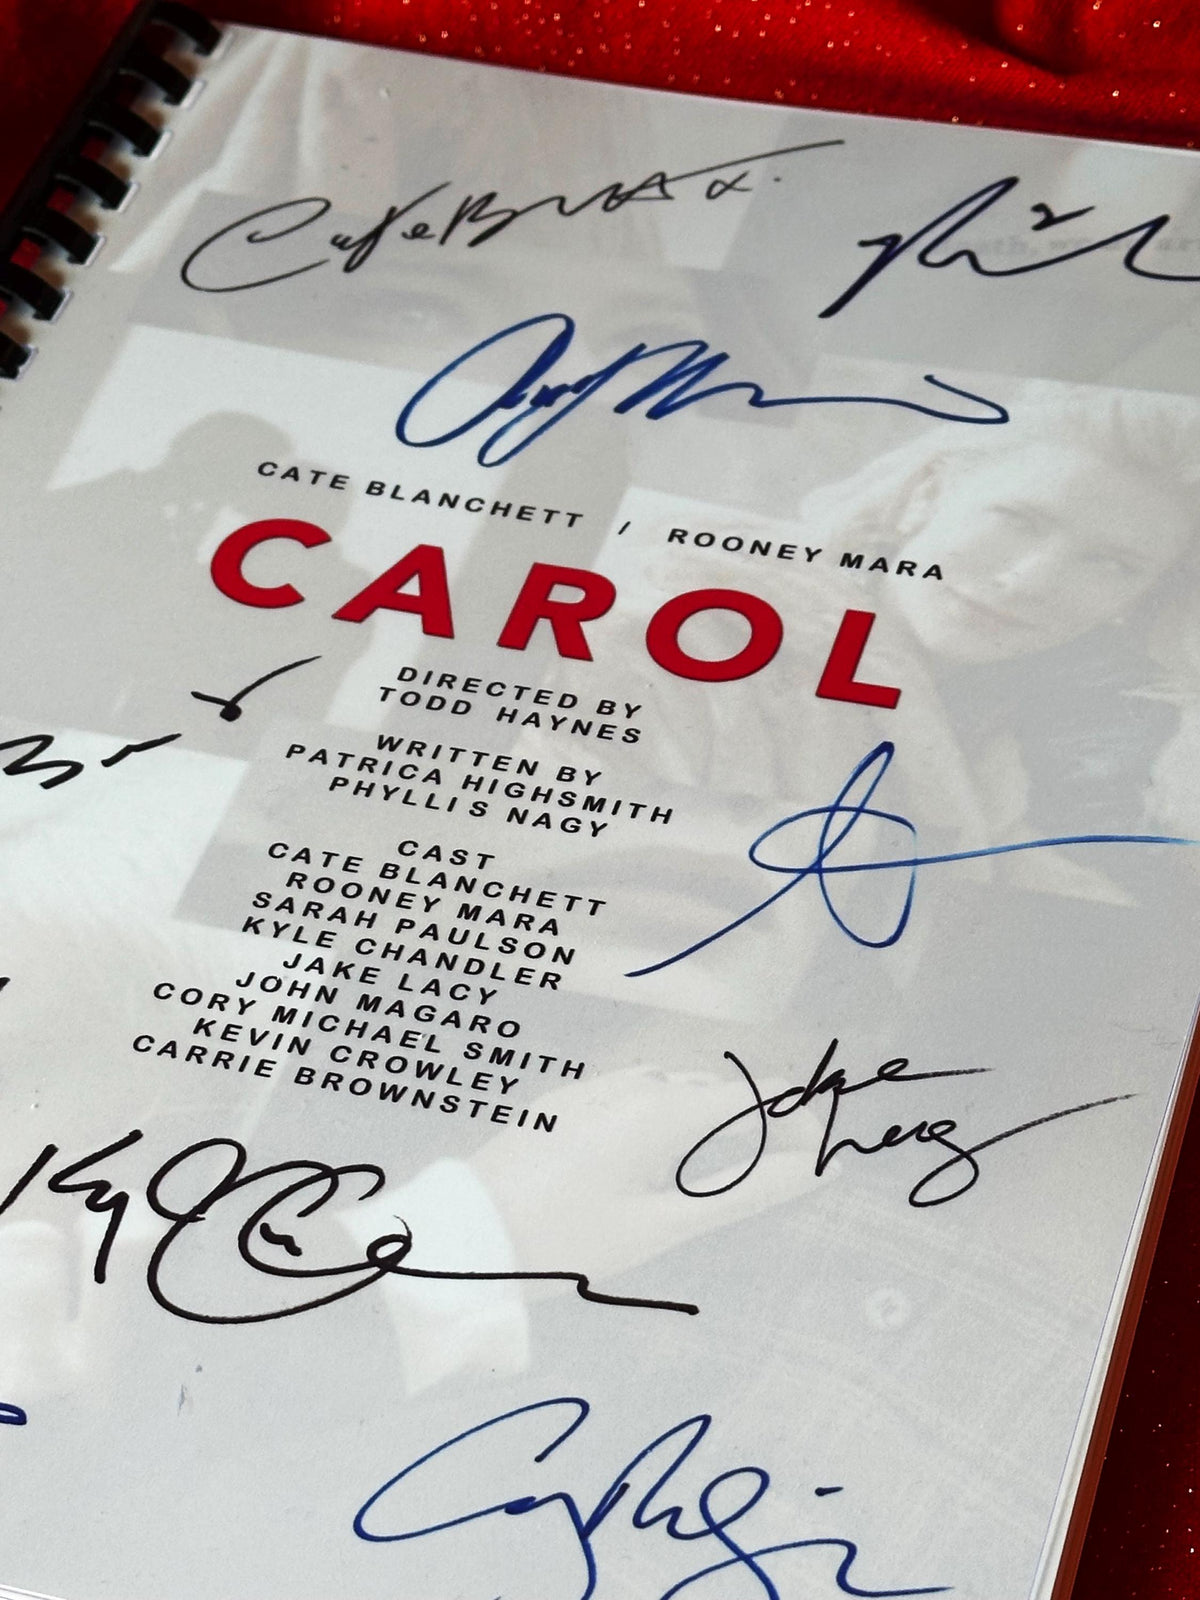 Cate Blanchett x.
CATE BLANCHETT / ROONEY MARA
CAROL
DIRECTED BY
TODD HAYNES
WRITTEN BY
PATRICA HIGHSMITH
PHYLLIS NAGY
CAST
CATE BLANCHETT
ROONEY MARA
SARAH PAULSON
KYLE CHANDLER
JAKE LACY
JOHN MAGARO
CORY MICHAEL SMITH
KEVIN CROWLEY
CARRIE BROWNSTEIN
Jake
Lacy